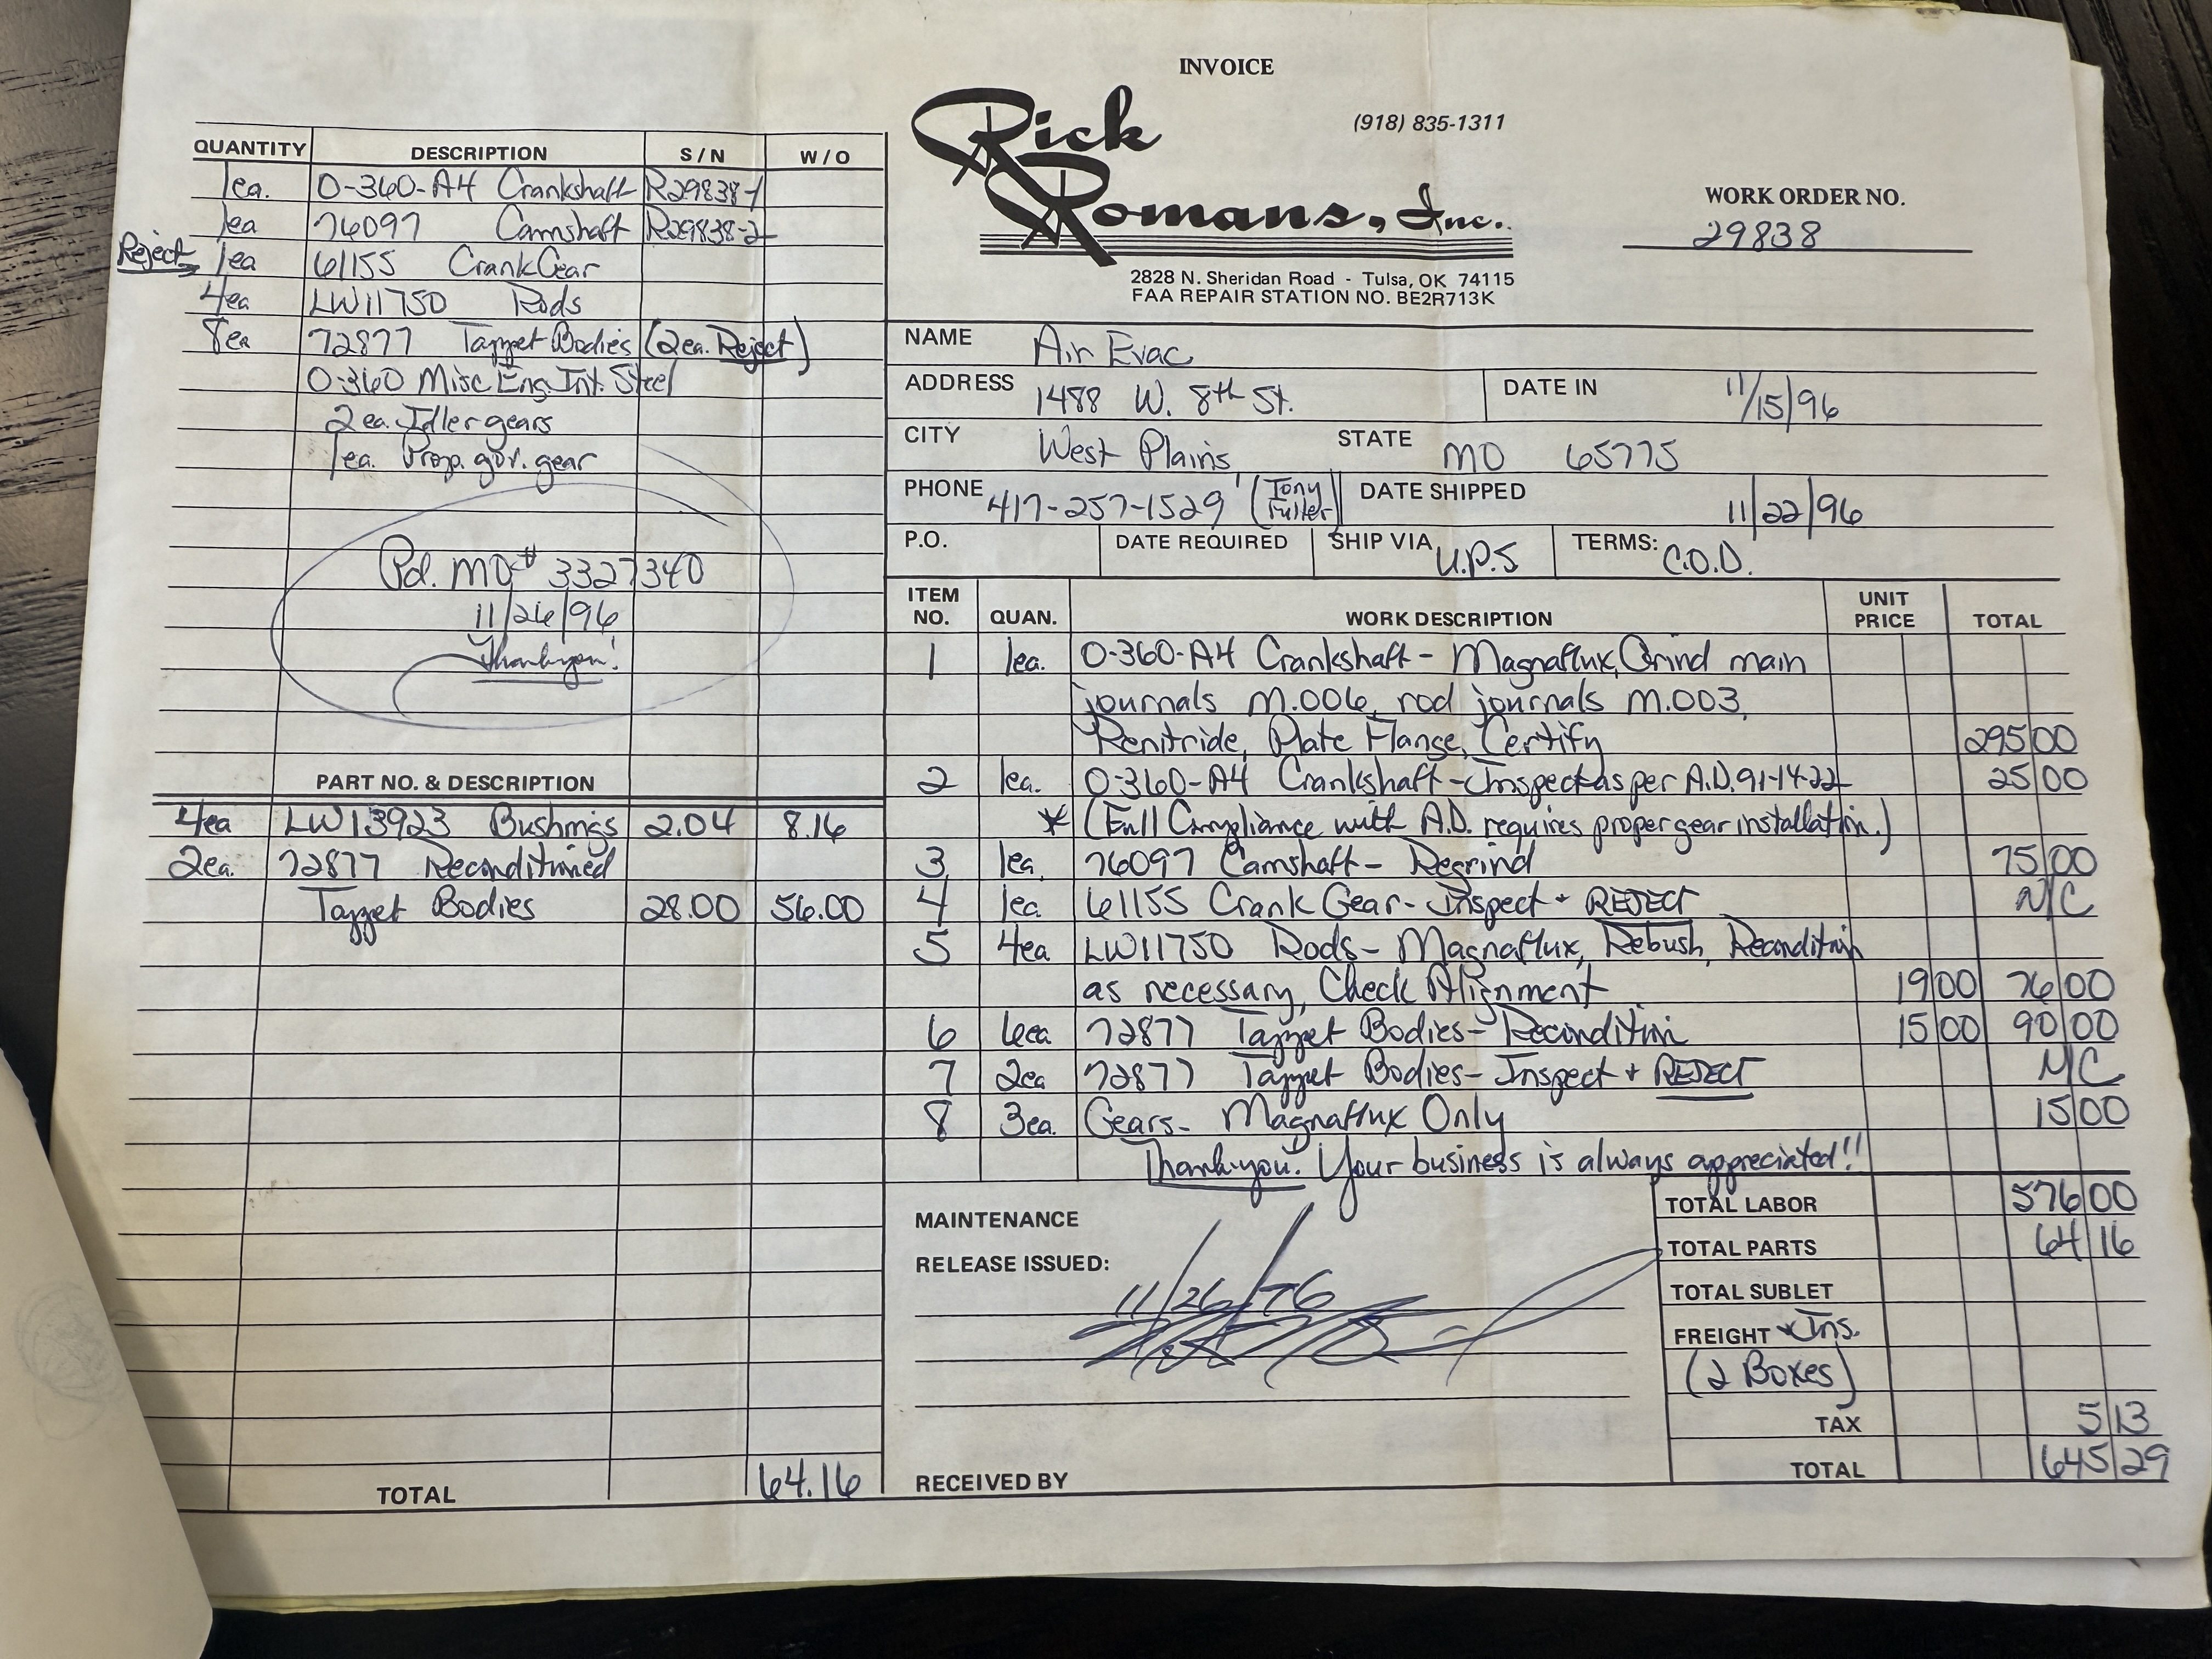 INVOICE
Rick Romans, Inc.
(918) 835-1311
2828 N. Sheridan Road - Tulsa, OK 74115
FAA REPAIR STATION NO. BE2R713K
WORK ORDER NO.
29838
QUANTITY DESCRIPTION S/N W/O
1ea. O-360-A4 Crankshaft R29838-1
1ea 76097 Camshaft R29838-2
Reject 1ea 61155 Crank Gear
4ea LW11750 Rods
8ea 72877 Tappet Bodies (2ea. Reject)
O-360 Misc Eng. Int. Steel
2ea. Idler gears
1ea. Prop. gov. gear
Pd. MO# 3327340
11/26/96
Thank you!
PART NO. & DESCRIPTION
4ea LW13923 Bushings 2.04 8.16
2ea. 72877 Reconditioned
Tappet Bodies 28.00 56.00
TOTAL 64.16
NAME Air Evac
ADDRESS 1488 W. 8th St. DATE IN 11/15/96
CITY West Plains STATE MO 65775
PHONE 417-257-1529 (Tony Fuller) DATE SHIPPED 11/22/96
P.O. DATE REQUIRED SHIP VIA U.P.S TERMS: C.O.D.
ITEM NO. QUAN. WORK DESCRIPTION UNIT PRICE TOTAL
1 1ea. O-360-A4 Crankshaft - Magnaflux, Grind main
journals M.006, rod journals M.003,
Renitride, Plate Flange, Certify 295 00
2 1ea. O-360-A4 Crankshaft - Inspect as per A.D. 91-14-22 25 00
* (Full Compliance with A.D. requires proper gear installation.)
3 1ea. 76097 Camshaft - Regrind 75 00
4 1ea. 61155 Crank Gear - Inspect + REJECT N/C
5 4ea. LW11750 Rods - Magnaflux, Rebush, Recondition
as necessary, Check Alignment 19 00 76 00
6 6ea 72877 Tappet Bodies - Recondition 15 00 90 00
7 2ea 72877 Tappet Bodies - Inspect + REJECT N/C
8 3ea. Gears - Magnaflux Only 15 00
Thank you. Your business is always appreciated!!
MAINTENANCE
RELEASE ISSUED:
11/26/96
RECEIVED BY
TOTAL LABOR 576 00
TOTAL PARTS 64 16
TOTAL SUBLET
FREIGHT + Ins.
(2 Boxes)
TAX 5 13
TOTAL 645 29